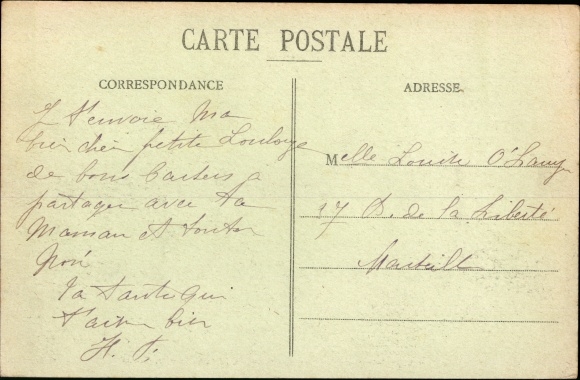 CARTE POSTALE
CORRESPONDANCE
ADRESSE.
J t'envoie Ma
bien chère petite
de bons baisers a
partager avec ta
Maman et tonton
ta tante qui
t'aime bien
H. F.
Melle Louise
17 B. de la Liberté
Marseille